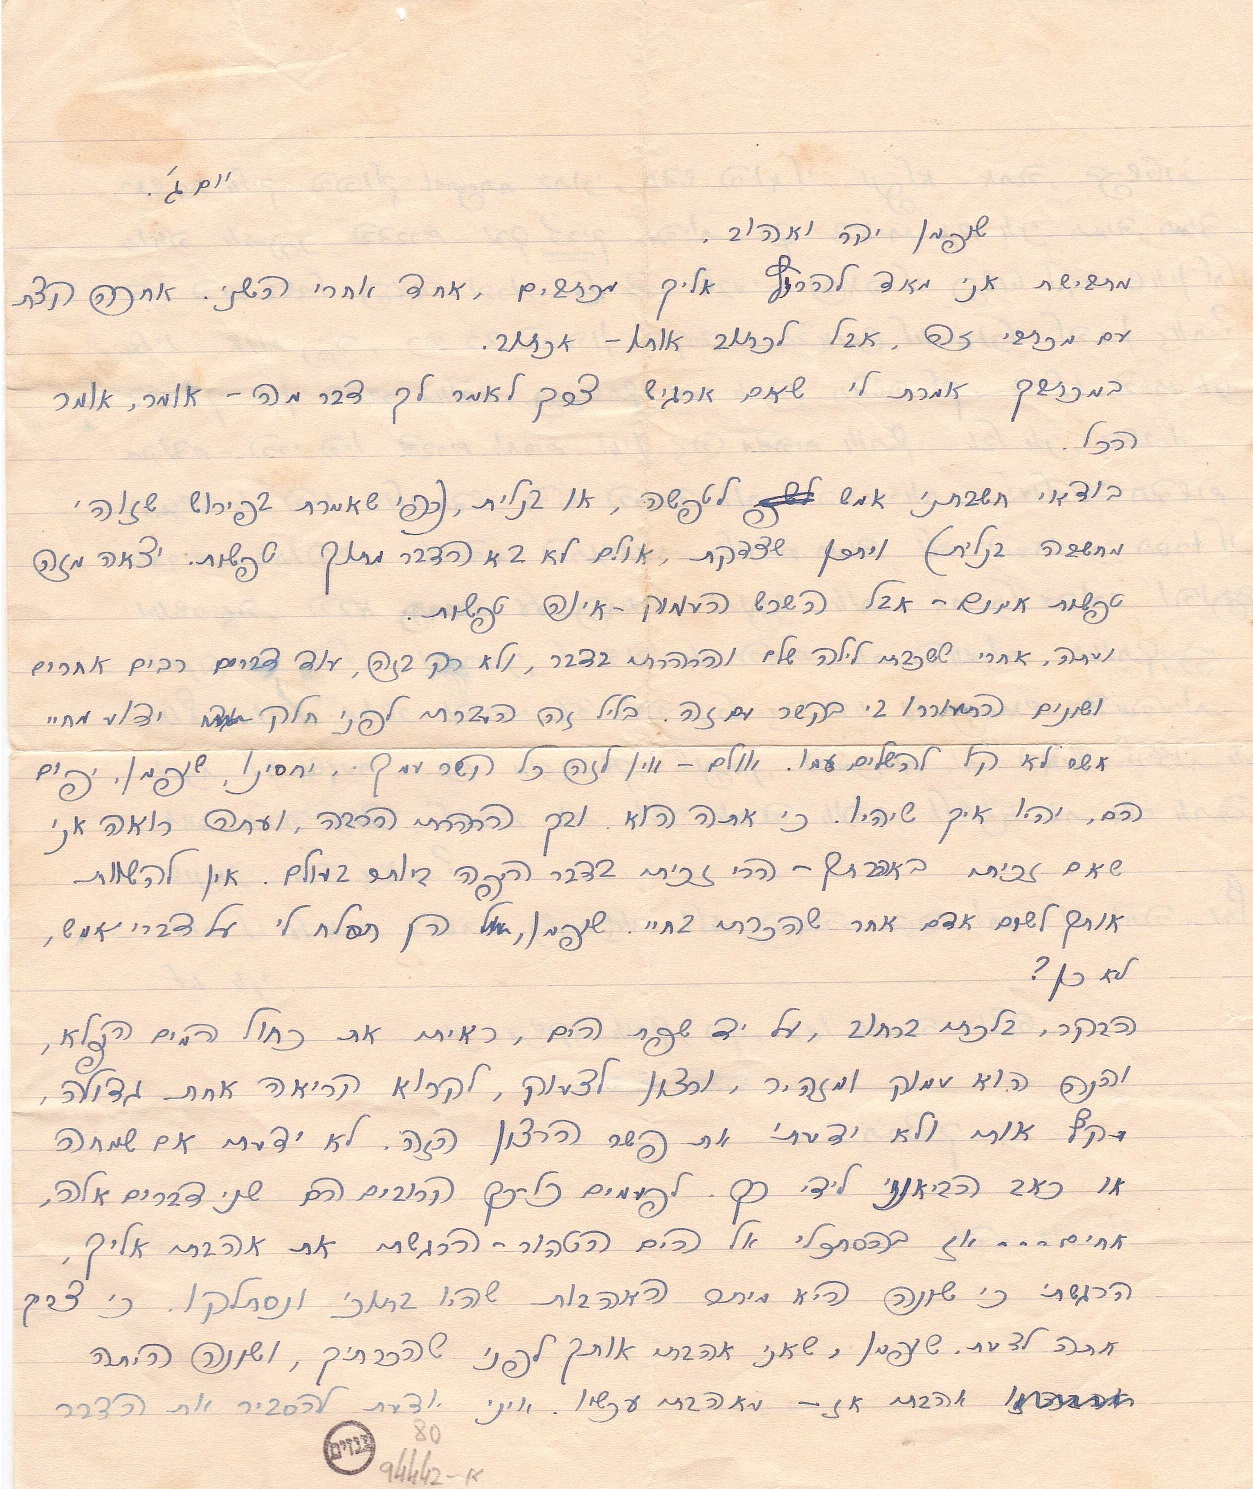 יום ג'.
שופמן יקר ואהוב.
מתביישת אני מאד להריץ אליך מכתבים, אחד אחרי השני. אחכה קצת
עם מכתבי זה, אבל לכתוב אותו – אכתוב.
במכתבך אמרת לי שאם ארגיש צרך לאמר לך דבר מה – אומר, אומר
הכל.
בודאי חשבתני אמש לטפשה, או בנלית, (כפי שאמרת בפירוש שזוהי
מחשבה בנלית) ויתכן שצדקת, אולם לא בא הדבר מתוך טפשות. יצאה מזה
טפשות אמנם – אבל השרש העמוק – אינה טפשות.
ועתה, אחרי ששכבתי לילה שלם והרהרתי בדבר, ולא רק בזה, עוד דברים רבים אחרים
ושונים התעוררו בי בקשר עם זה. בליל זה העברתי לפני חלק ידוע מחיי
אשר לא קל להשלים עמו. אולם – אין לזה כל קשר עמך. יחסינו, שופמן, יפים
הם, יהיו איך שיהיו. כי אתה הוא. ובך הרהרתי הרבה, ועתה רואה אני
שאם זכיתי באהבתך – הרי זכיתי בדבר היפה ביותר בעולם. אין להשוות
אותך לשום אדם אחר שהכרתי בחיי. שופמן, הן תסלח לי על דברי אמש,
לא כן?
הבקר, בלכתי ברחוב, על יד שפת הים, ראיתי את כחול המים הנפלא,
והנה הוא עמוק ומזהיר, ורצון לצעוק, לקרוא קריאה אחת גדולה,
תקף אותי ולא ידעתי את פשר הרצון הזה. לא ידעתי אם שמחה
או כאב הביאוני לידי כך. לפעמים כל-כך קרובים הם שני דברים אלה,
אחים --- אז בהסתכלי אל הים הטהור – הרגשתי את אהבתי אליך,
הרגשתי כי שונה היא מיתר האהבות שהיו בתוכי ונסתלקו. כי צריך
אתה לדעת. שופמן, שאני אהבתי אותך לפני שהכרתיך, ושונה היתה
אהבתי אז – מאהבתי עכשיו. אינני יודעת להסביר את הדבר
גנזים
80
94442-א